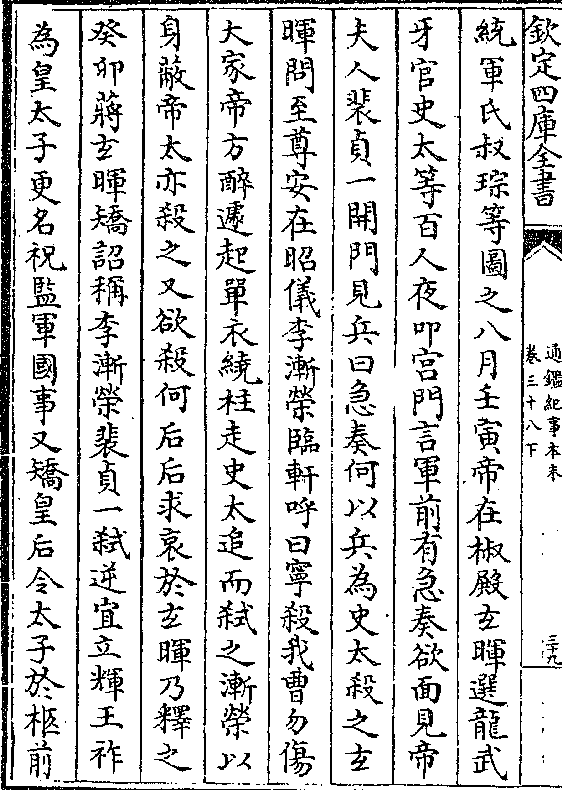 欽定四庫全書
通鑑紀事本末
卷三十八下
三十九
統軍氏叔琮等圖之八月壬寅帝在椒殿玄暉選龍武
牙官史太等百人夜叩宫門言軍前有急奏欲面見帝
夫人裴貞一開門見兵曰急奏何以兵為史太殺之玄
暉問至尊安在昭儀李漸榮臨軒呼曰寧殺我曹勿傷
大家帝方醉遽起單衣繞柱走史太追而弑之漸榮以
身蔽帝太亦殺之又欲殺何后后求哀於玄暉乃釋之
癸卯蔣玄暉矯詔稱李漸榮裴貞一弑逆宜立輝王祚
為皇太子更名祝監軍國事又矯皇后令太子於柩前